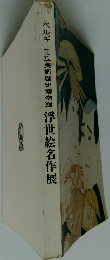 ベルギー王立美術歴史博物館 浮世絵名作展